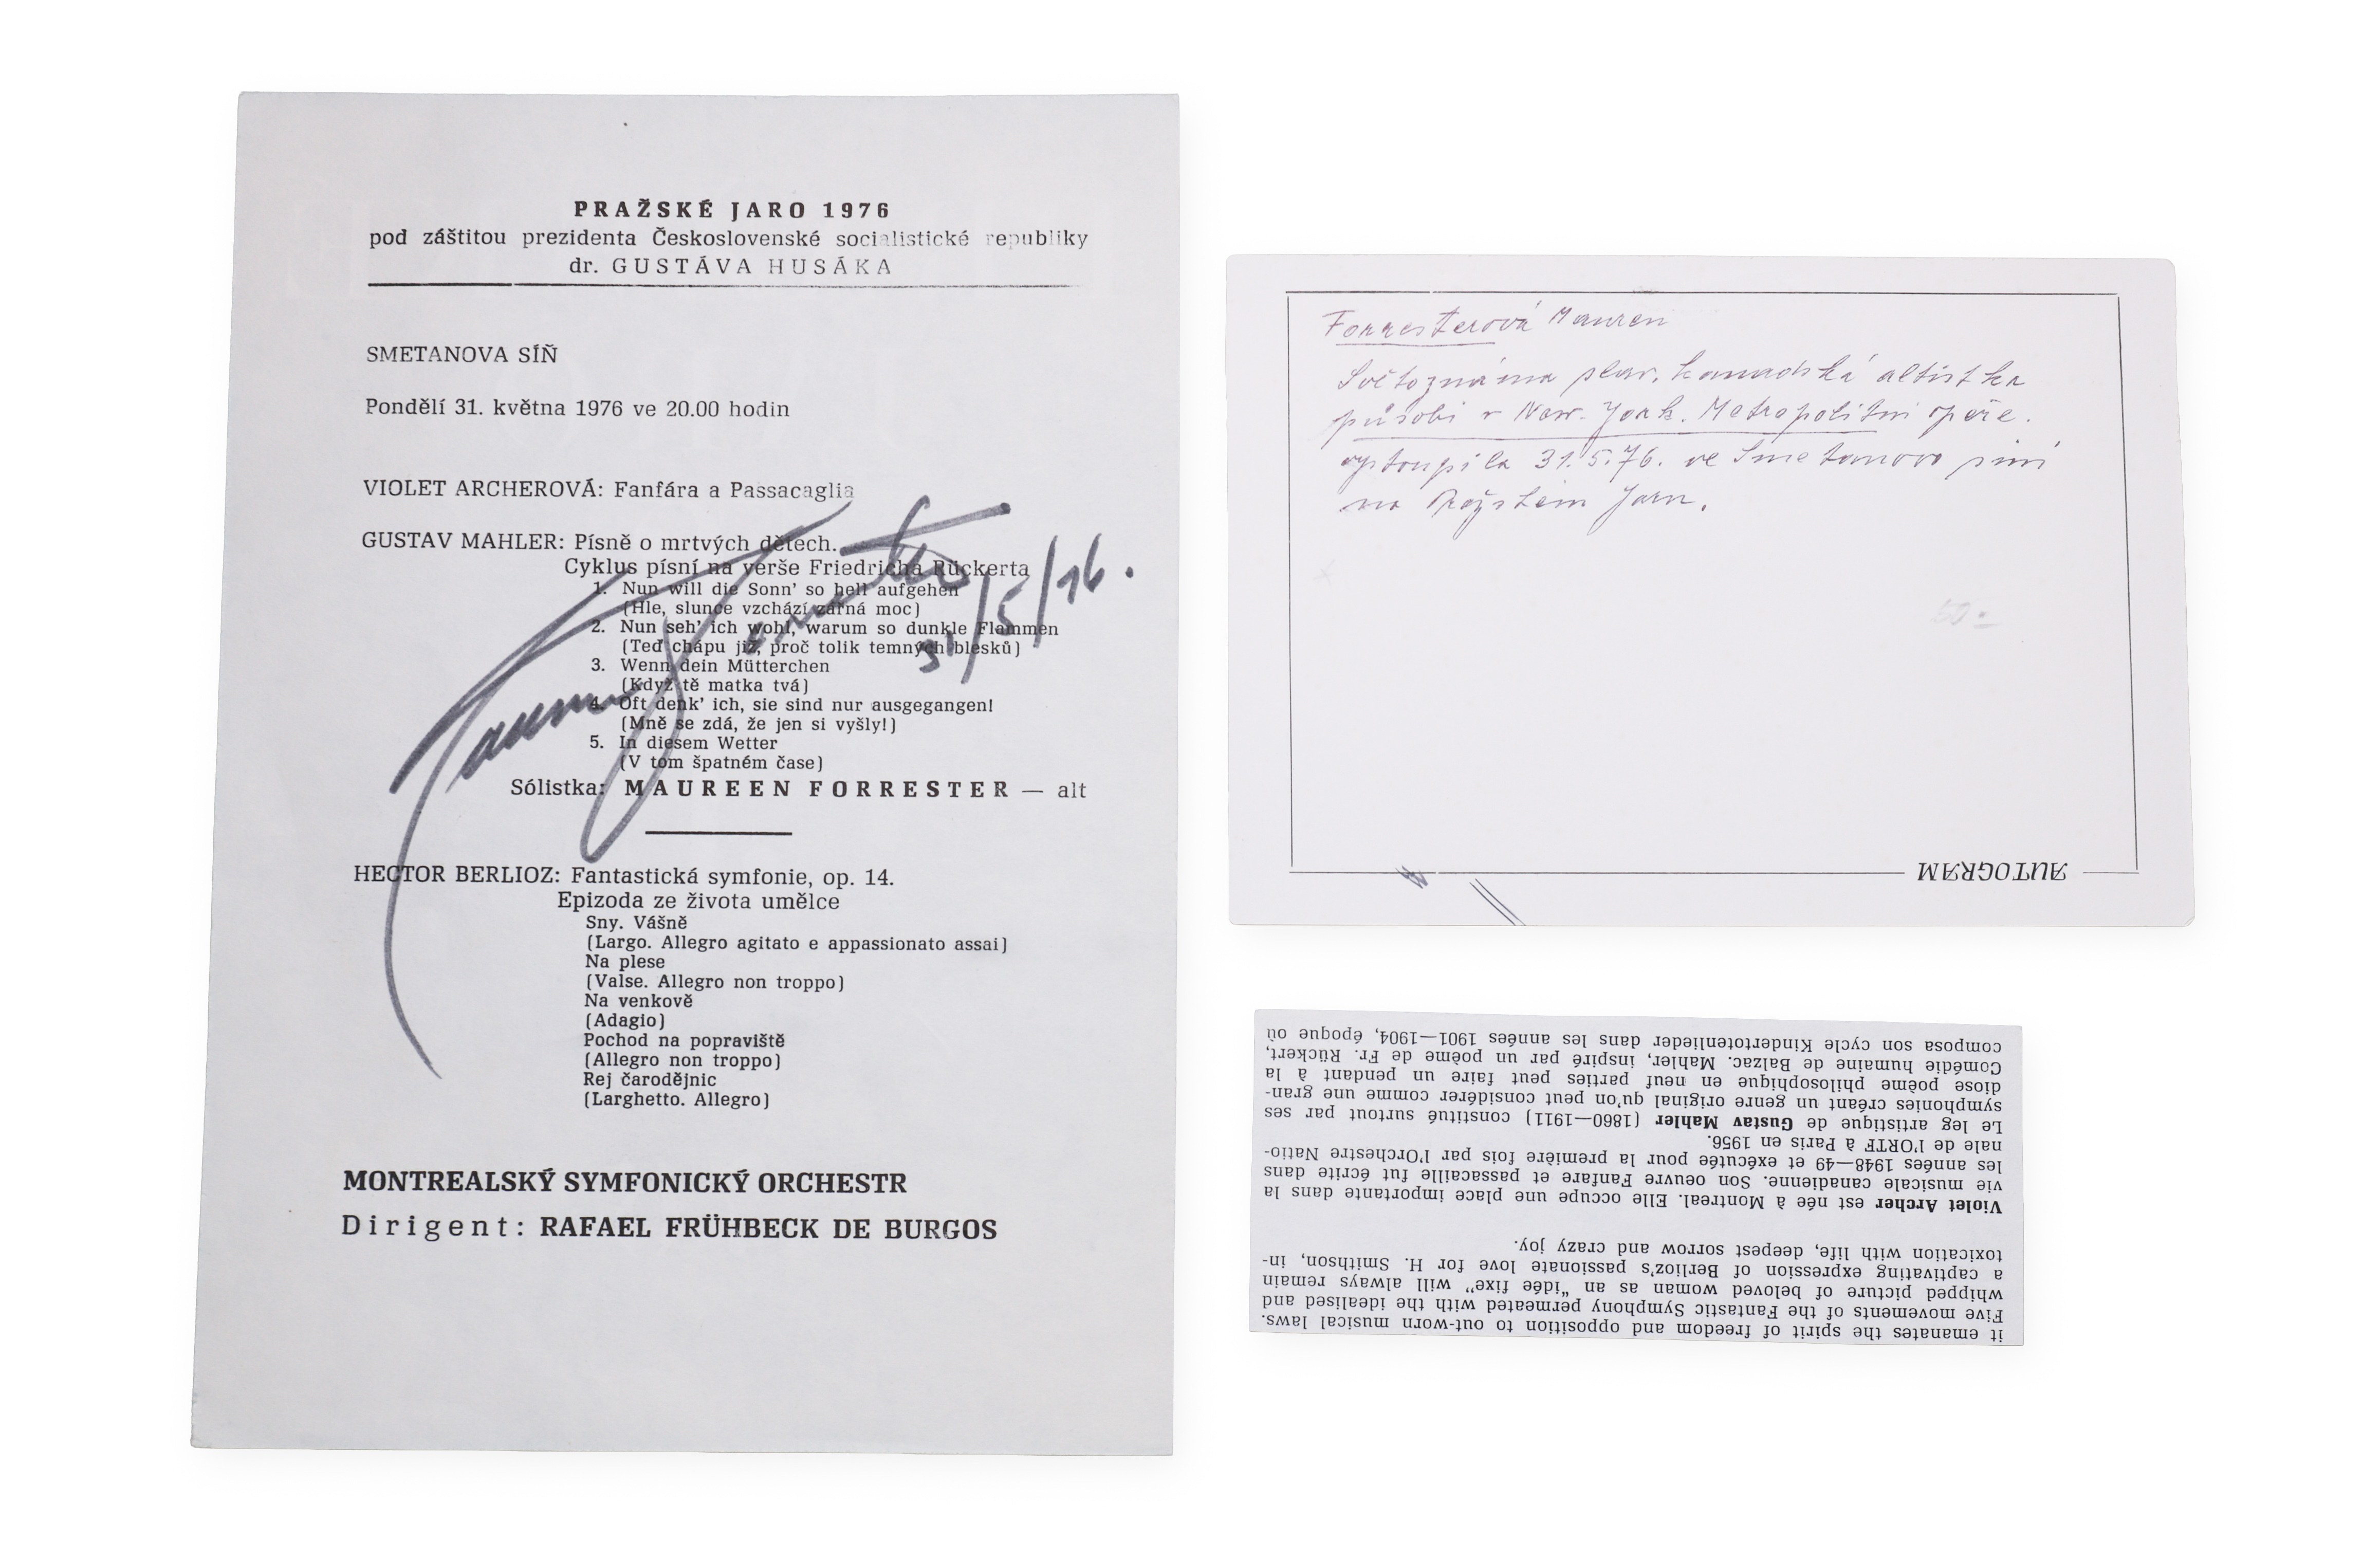 PRAŽSKÉ JARO 1976
pod záštitou prezidenta Československé socialistické republiky
dr. GUSTÁVA HUSÁKA
SMETANOVA SÍŇ
Pondělí 31. května 1976 ve 20.00 hodin
VIOLET ARCHEROVÁ: Fanfára a Passacaglia
GUSTAV MAHLER: Písně o mrtvých dětech.
Cyklus písní na verše Friedricha Rückerta
1. Nun will die Sonn' so hell aufgehen
(Hle, slunce vzchází zářná moc)
2. Nun seh' ich wohl, warum so dunkle Flammen
(Teď chápu již, proč tolik temných blesků)
3. Wenn dein Mütterchen
(Když tě matka tvá)
4. Oft denk' ich, sie sind nur ausgegangen!
(Mně se zdá, že jen si vyšly!)
5. In diesem Wetter
(V tom špatném čase)
Sólistka: MAUREEN FORRESTER — alt
Maureen Forrester
31/5/76.
HECTOR BERLIOZ: Fantastická symfonie, op. 14.
Epizoda ze života umělce
Sny. Vášně
(Largo. Allegro agitato e appassionato assai)
Na plese
(Valse. Allegro non troppo)
Na venkově
(Adagio)
Pochod na popraviště
(Allegro non troppo)
Rej čarodějnic
(Larghetto. Allegro)
MONTREALSKÝ SYMFONICKÝ ORCHESTR
Dirigent: RAFAEL FRÜHBECK DE BURGOS
Forresterová Mauren
Světoznáma slav. kanadská altistka
působí v New. York. Metropolitní opeře.
vystoupila 31.5.76. ve Smetanova síni
na Pražském Jaru.
50.-
AUTOGRAM
it emanates the spirit of freedom and opposition to out-worn musical laws.
Five movements of the Fantastic Symphony permeated with the idealised and
whipped picture of beloved woman as an "idée fixe" will always remain
a captivating expression of Berlioz's passionate love for H. Smithson, in-
toxication with life, deepest sorrow and crazy joy.
Violet Archer est née à Montreal. Elle occupe une place importante dans la
vie musicale canadienne. Son oeuvre Fanfare et passacaille fut écrite dans
les années 1948—49 et exécutée pour la première fois par l'Orchestre Natio-
nale de l'ORTF à Paris en 1956.
Le leg artistique de Gustav Mahler (1860—1911) constitué surtout par ses
symphonies créant un genre original qu'on peut considérer comme une gran-
diose poème philosophique en neuf parties peut faire un pendant à la
Comédie humaine de Balzac. Mahler, inspiré par un poème de Fr. Rückert,
composa son cycle Kindertotenlieder dans les années 1901—1904, époque où